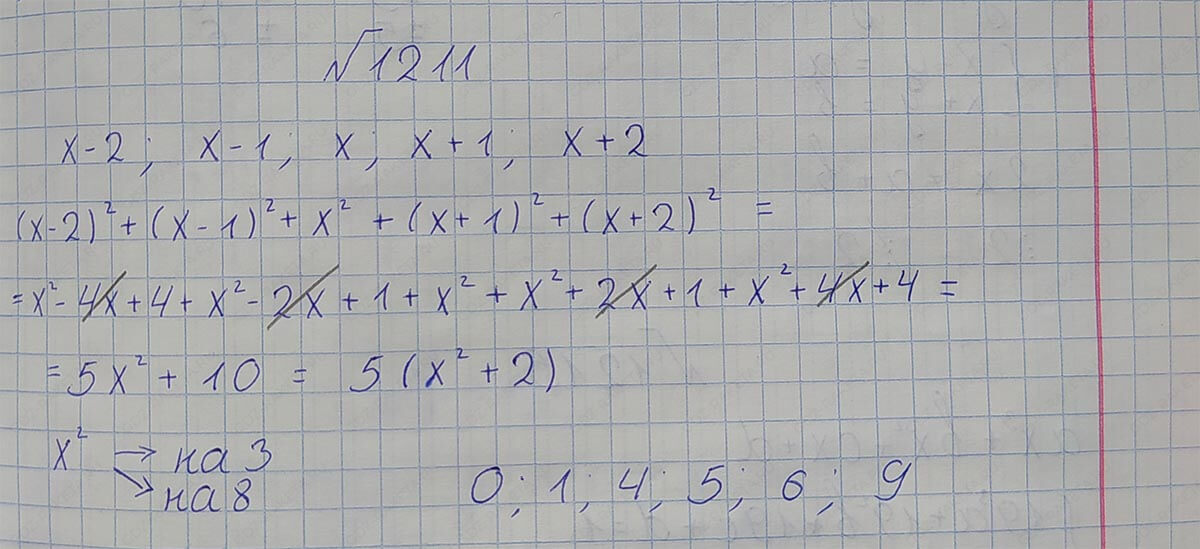 √1211
x-2; x-1; x; x+1; x+2
(x-2)²+(x-1)²+x²+(x+1)²+(x+2)² =
=x²-4x+4+x²-2x+1+x²+x²+2x+1+x²+4x+4 =
=5x²+10 = 5(x²+2)
x² → на 3
→ на 8
0; 1; 4; 5; 6; 9